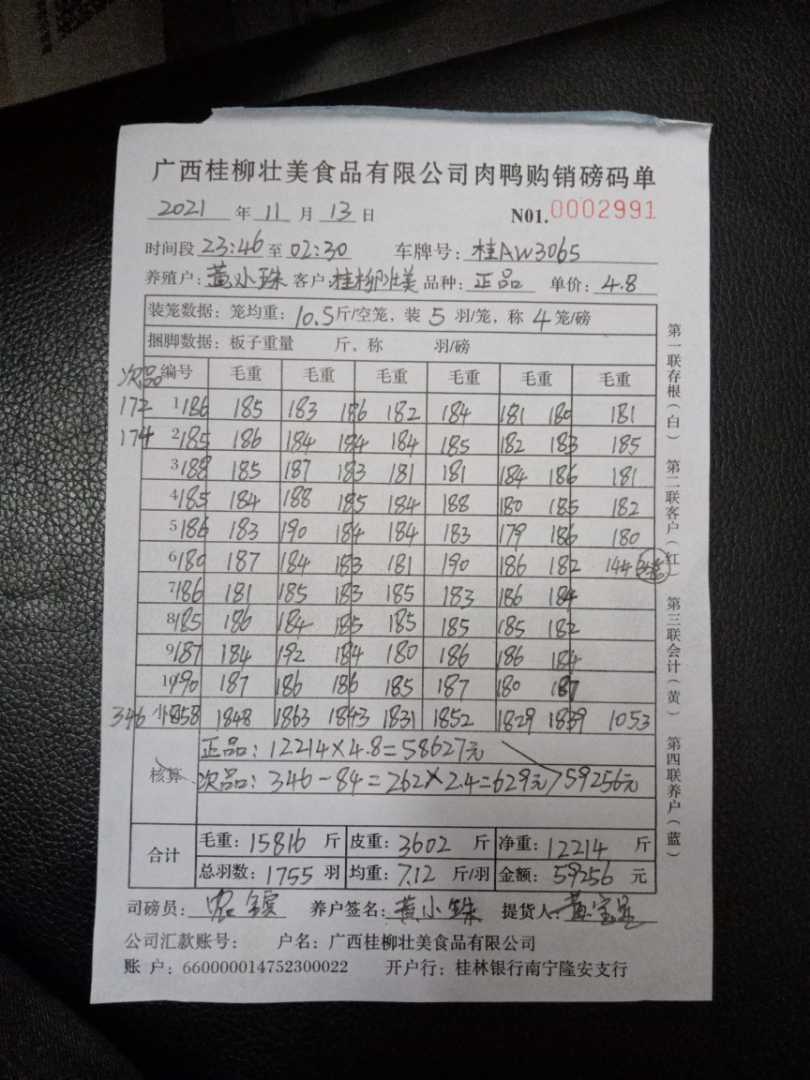 广西桂柳壮美食品有限公司肉鸭购销磅码单
2021 年 11 月 13 日 N01.0002991
时间段 23:46 至 02:30 车牌号: 桂AW3065
养殖户: 黄小珠 客户: 桂柳壮美 品种: 正品 单价: 4.8
装笼数据: 笼均重: 10.5 斤/空笼, 装 5 羽/笼, 称 4 笼/磅
捆脚数据: 板子重量 斤, 称 羽/磅
次品 编号 毛重 毛重 毛重 毛重 毛重
172 1 186 185 183 186 182 184 181 180 181
174 2 185 186 184 184 184 185 182 183 185
3 188 185 187 183 181 181 184 186 181
4 185 184 188 185 184 188 180 185 182
5 186 183 190 184 184 183 179 186 180
6 180 187 184 183 181 190 186 182 144
7 186 181 185 183 185 183 186 184
8 185 186 184 185 185 185 185 182
9 187 184 192 184 180 186 186 184
10 190 187 186 186 185 187 180 187
346 小 1858 1848 1863 1843 1831 1852 1829 1839 1053
核算 正品: 12214×4.8=58627元
次品: 346-84=262×2.4=629元 59256元
合计 毛重: 15816 斤 皮重: 3602 斤 净重: 12214 斤
总羽数: 1755 羽 均重: 7.12 斤/羽 金额: 59256 元
司磅员: 养户签名: 黄小珠 提货人:
公司汇款账号: 户名: 广西桂柳壮美食品有限公司
账 户: 660000014752300022 开户行: 桂林银行南宁隆安支行
第一联存根(白) 第二联客户(红) 第三联会计(黄) 第四联养户(蓝)